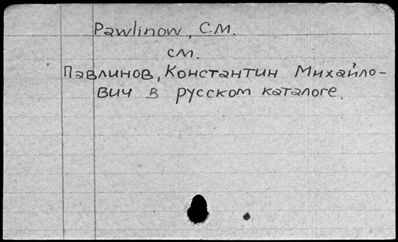 Pawlinow, C.M.
см.
Павлинов, Константин Михайло-
вич в русском каталоге.